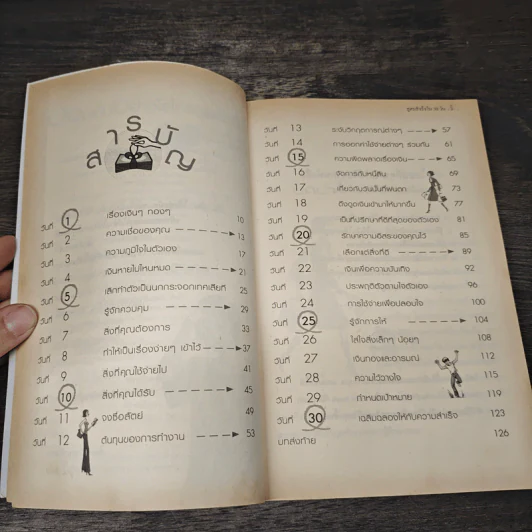 สารบัญ
วันที่ 1 เรื่องเงินๆ ทองๆ 10
วันที่ 2 ความเชื่อของคุณ 13
วันที่ 3 ความภูมิใจในตัวเอง 17
วันที่ 4 เงินหายไปไหนหมด 21
วันที่ 5 เลิกทำตัวเป็นนกกระจอกเทศเสียที 25
วันที่ 6 รู้จักควบคุม 29
วันที่ 7 สิ่งที่คุณต้องการ 33
วันที่ 8 ทำให้เป็นเรื่องง่ายๆ เข้าไว้ 37
วันที่ 9 สิ่งที่คุณใช้จ่ายไป 41
วันที่ 10 สิ่งที่คุณได้รับ 45
วันที่ 11 จงซื่อสัตย์ 49
วันที่ 12 ต้นทุนของการทำงาน 53
วันที่ 13 ระงับวิกฤตการณ์ต่างๆ 57
วันที่ 14 การออกค่าใช้จ่ายต่างๆ ร่วมกัน 61
วันที่ 15 ความผิดพลาดเรื่องเงิน 65
วันที่ 16 จัดการกับหนี้สิน 69
วันที่ 17 เก็บไว้ใช้วันที่ฝนตก 73
วันที่ 18 ดึงดูดเงินเข้ามาให้มากขึ้น 77
วันที่ 19 เป็นที่ปรึกษาที่ดีที่สุดของตัวเอง 81
วันที่ 20 รักษาความอิสระของคุณไว้ 85
วันที่ 21 เลือกแต่สิ่งที่ดี 89
วันที่ 22 เงินเพื่อความบันเทิง 92
วันที่ 23 ประพฤติตัวตามใจตัวเอง 96
วันที่ 24 การใช้จ่ายเพื่อปลอบใจ 100
วันที่ 25 รู้จักการให้ 104
วันที่ 26 ใส่ใจสิ่งเล็กๆ น้อยๆ 108
วันที่ 27 เงินทองและอารมณ์ 112
วันที่ 28 ความไว้วางใจ 115
วันที่ 29 กำหนดเป้าหมาย 119
วันที่ 30 เฉลิมฉลองให้กับความสำเร็จ 123
บทส่งท้าย 126